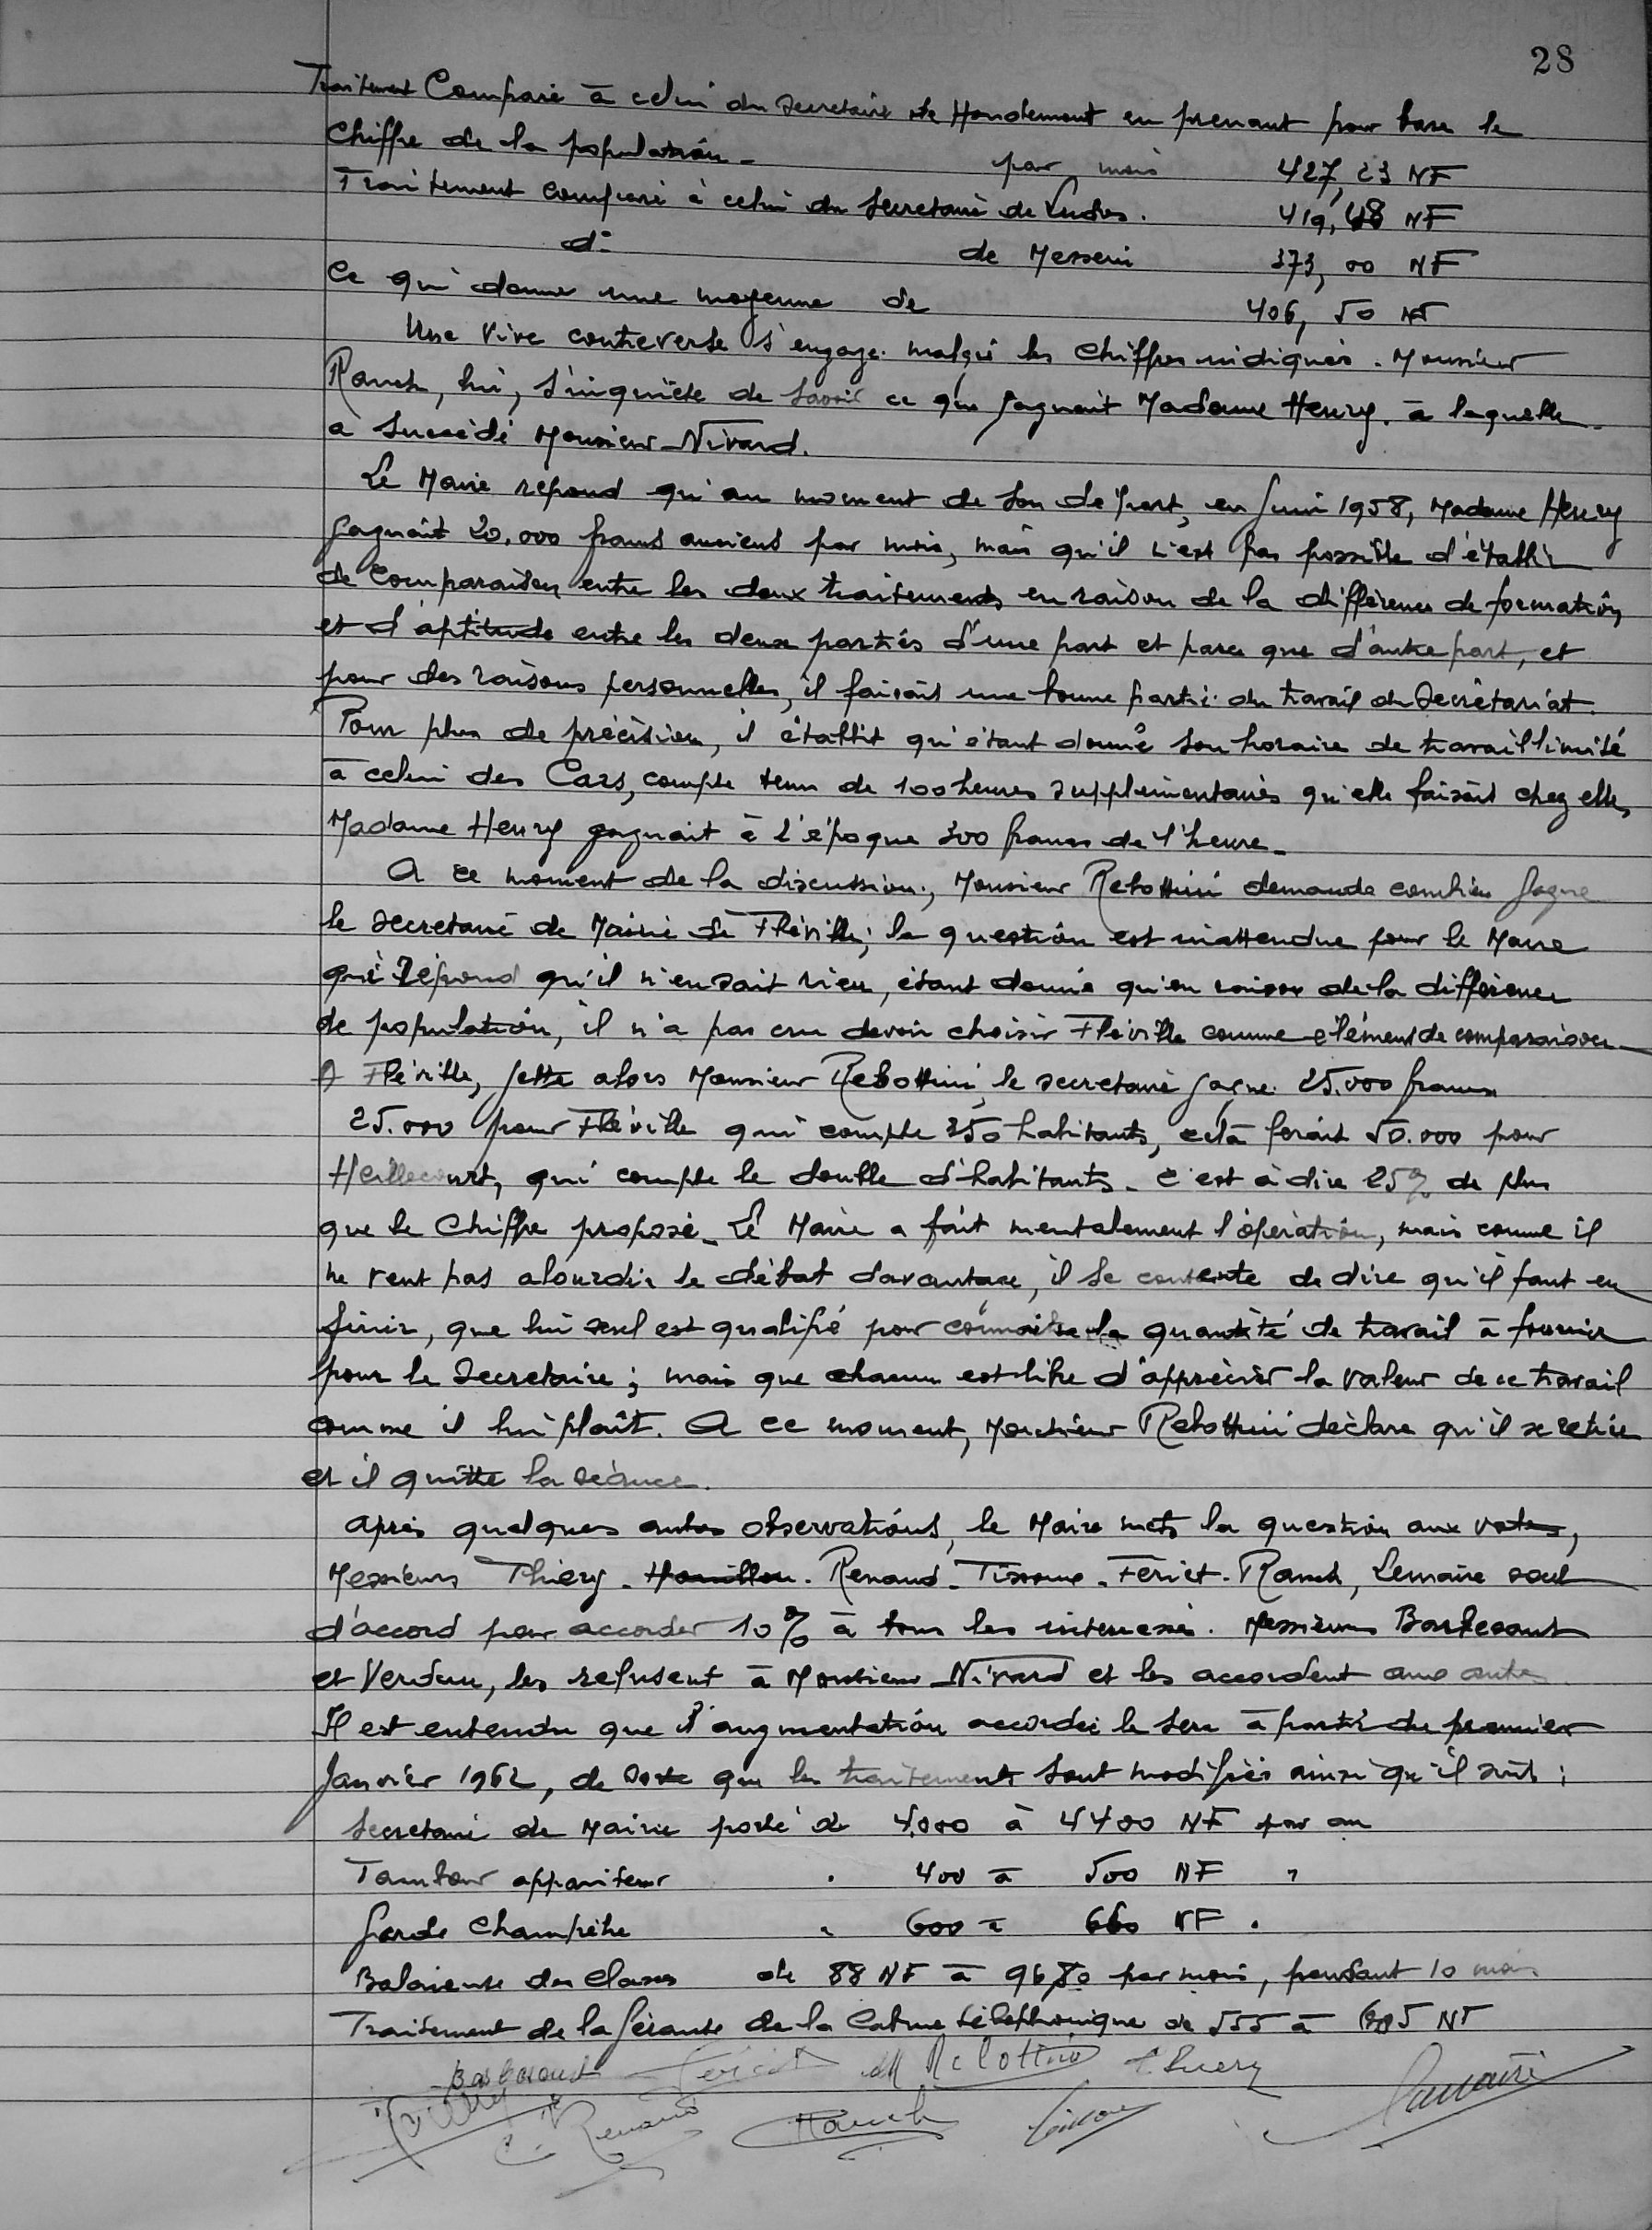 28
Traitement Comparé à celui du Secrétaire de Houdemont en prenant pour base le
Chiffre de la population - par mois 427,23 NF
Traitement comparé à celui du Secrétaire de Ludres. 419,48 NF
d° de Messein 373,00 NF
Ce qui donne une moyenne de 406,50 NF
Une vive controverse s'engage malgré les chiffres indiqués. Monsieur
Rauch, lui, s'inquiète de savoir ce que gagnait Madame Henry à laquelle
a succédé Monsieur Nivard.
Le Maire répond qu'au moment de son départ, en Juin 1958, Madame Henry
gagnait 20.000 francs anciens par mois, mais qu'il n'est pas possible d'établir
de comparaison entre les deux traitements en raison de la différence de formation
et d'aptitude entre les deux parties d'une part et parce que d'autre part, et
pour des raisons personnelles, il faisait une bonne partie du travail du Secrétariat.
Pour plus de précision, il établit qu'étant donné son horaire de travail limité
à celui des Cars, compte tenu de 100 heures supplémentaires qu'elle faisait chez elle,
Madame Henry gagnait à l'époque 300 francs de l'heure.
A ce moment de la discussion, Monsieur Rebottini demande combien gagne
le secrétaire de Mairie de Fléville; la question est inattendue pour le Maire
qui répond qu'il n'en sait rien, étant donné qu'en raison de la différence
de population, il n'a pas cru devoir choisir Fléville comme élément de comparaison
A Fléville, jette alors Monsieur Rebottini, le secrétaire gagne 25.000 francs
25.000 pour Fléville qui compte 250 habitants, celà ferait 50.000 pour
Heillecourt, qui compte le double d'habitants - c'est à dire 25% de plus
que le Chiffre proposé - Le Maire a fait mentalement l'opération, mais comme il
ne veut pas alourdir le débat davantage, il se contente de dire qu'il faut en
finir, que lui seul est qualifié pour connaitre la quantité de travail à fournir
pour le Secrétaire; mais que chacun est libre d'apprécier la valeur de ce travail
comme il lui plaît. A ce moment, Monsieur Rebottini déclare qu'il se retire
et il quitte la séance.
Après quelques autres observations, le Maire mets la question aux votes,
Messieurs Thiery - Houillon - Renaud - Tissoux - Feriet - Rauch, Lemaire sont
d'accord pour accorder 10% à tous les intéressés. Messieurs Barbesant
et Verdun, les refusent à Monsieur Nivard et les accordent aux autres
Il est entendu que l'augmentation accordée le sera à partir du premier
Janvier 1962, de sorte que les traitements sont modifiés ainsi qu'il suit:
Secrétaire de Mairie porté de 4.000 à 4400 NF par an
Tambour appariteur " 400 à 500 NF "
Garde Champêtre " 600 à 660 NF "
Balayeuse des Classes de 88 NF à 96,80 par mois, pendant 10 mois
Traitement de la Gérante de la Cabine téléphonique de 555 à 605 NF
Barbesant Feriet Rebottini Thiery
Renaud Rauch Lemaire